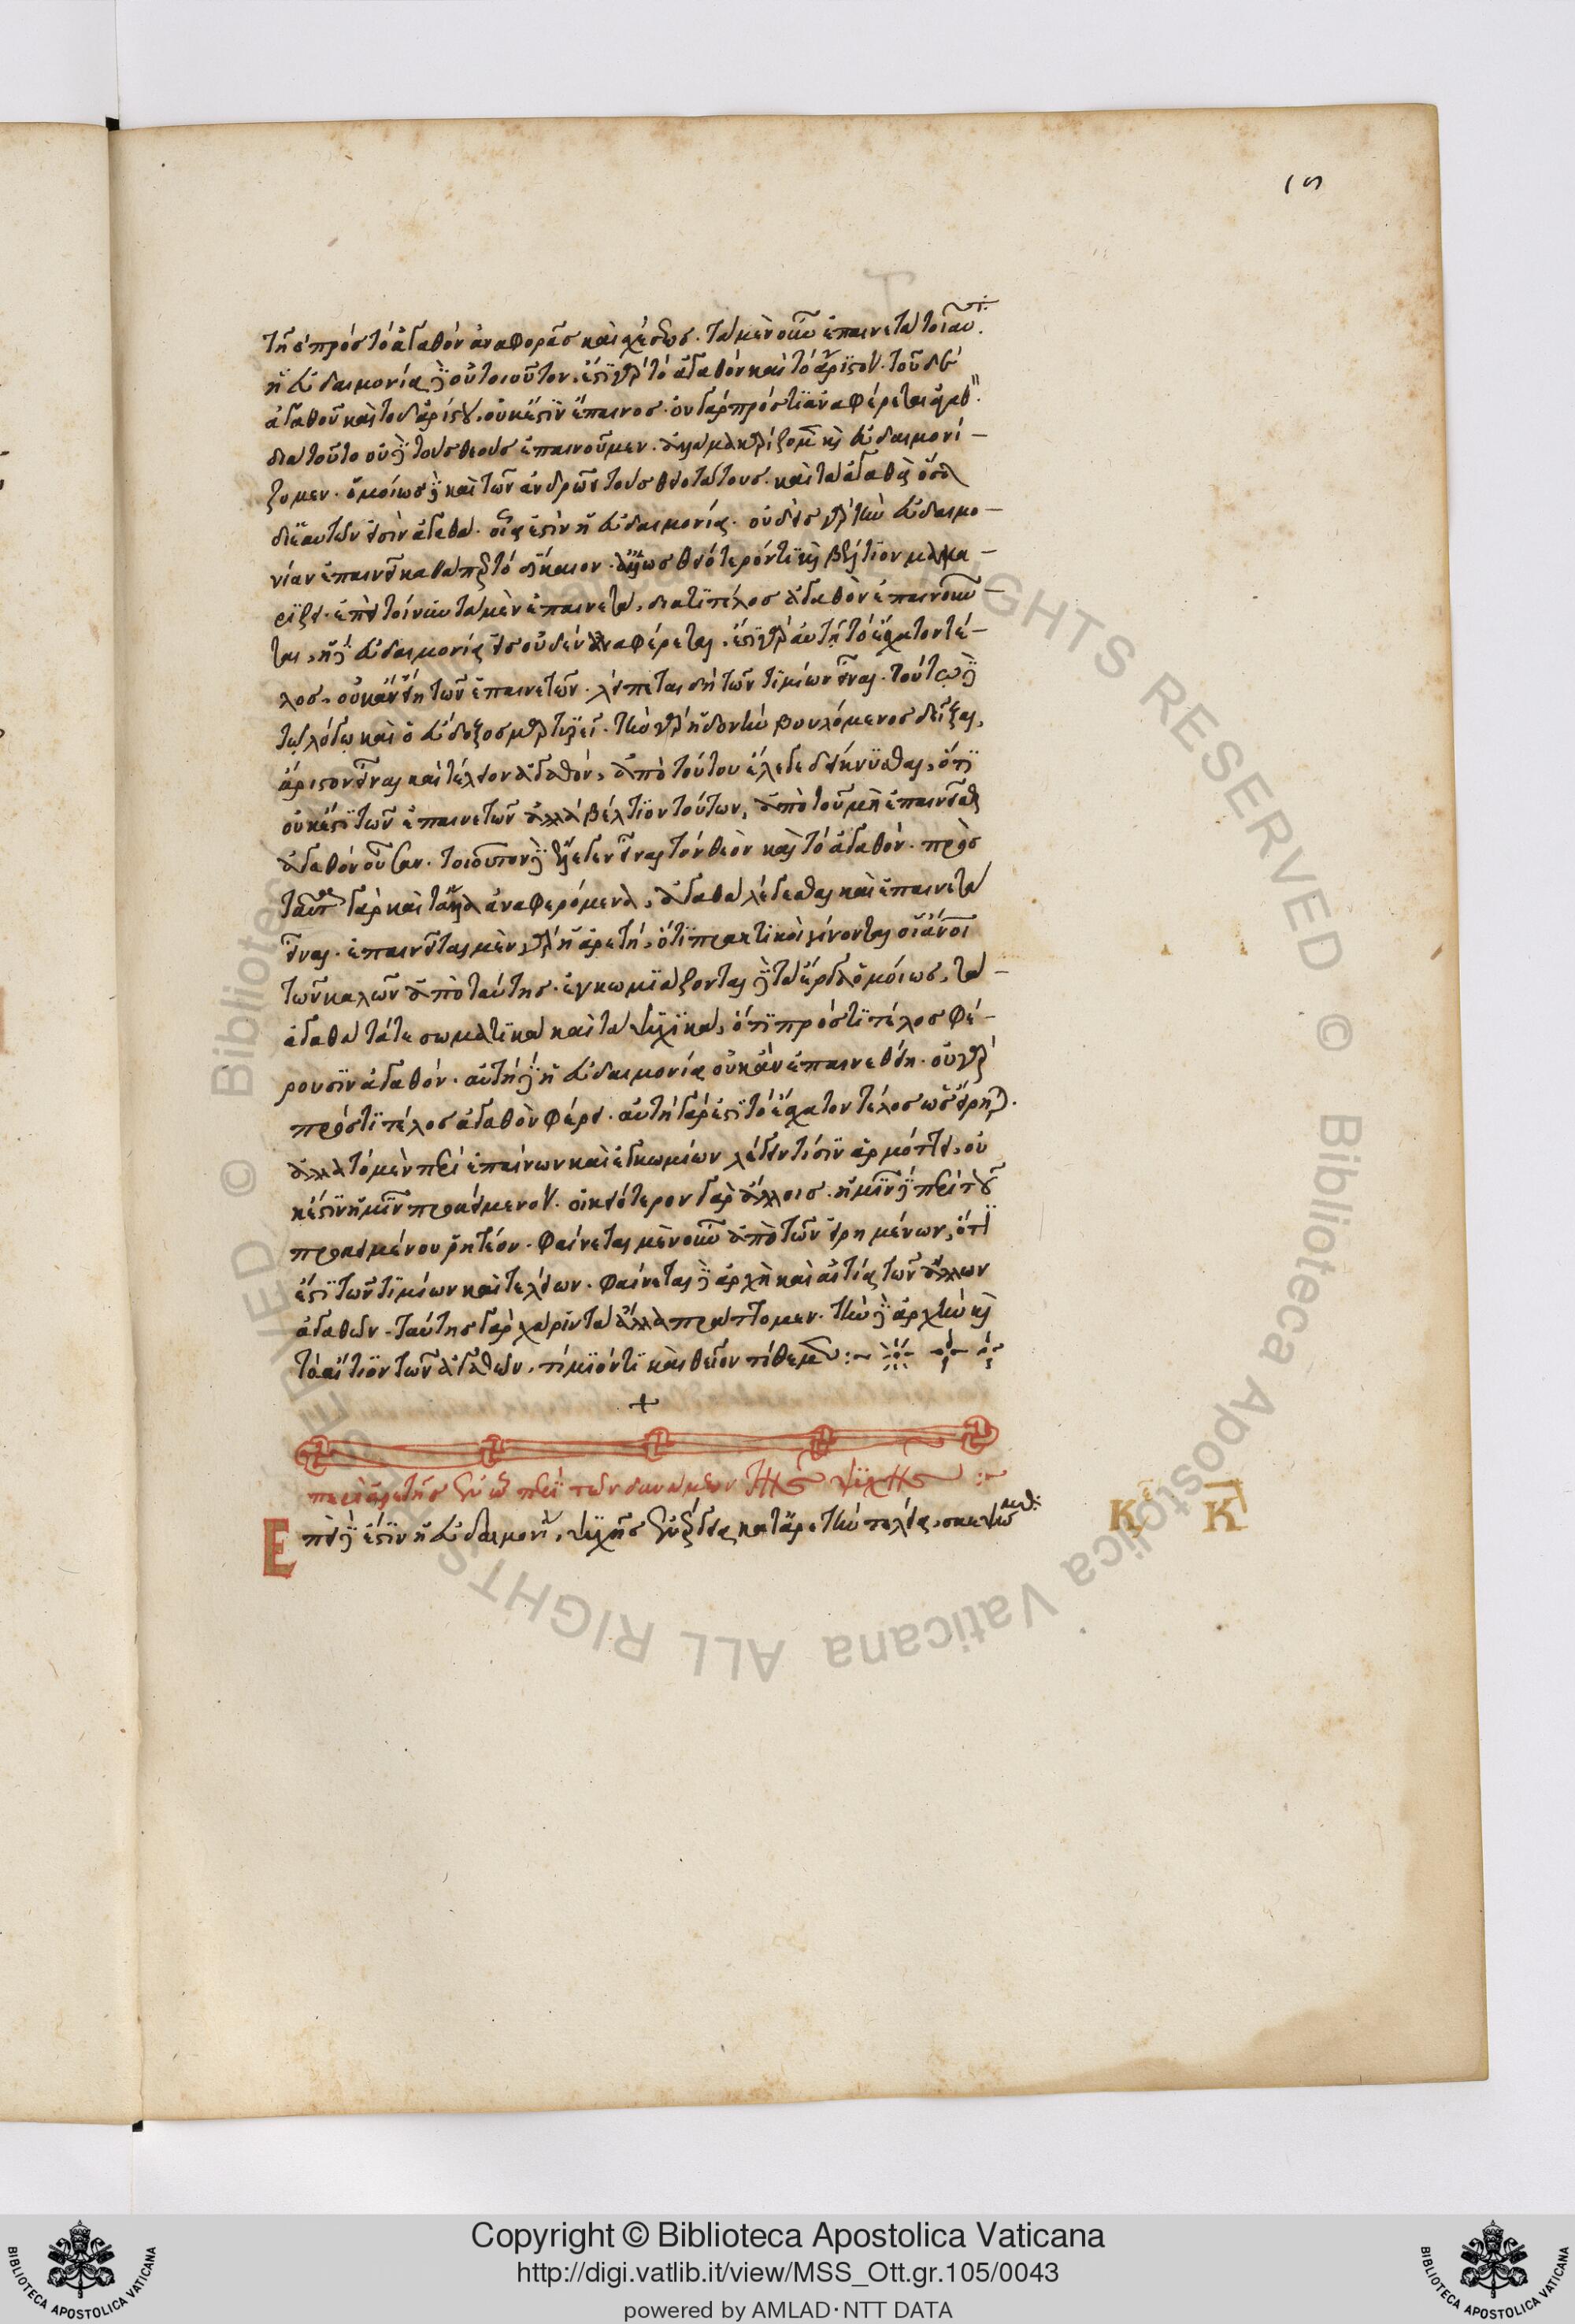 ις
τῆς πρὸς τὸ ἀγαθὸν ἀναφορᾶς καὶ σχέσεως. τὰ μὲν οὖν ἐπαινετὰ τοιαῦτ.
ἡ εὐδαιμονία δὲ οὐ τοιοῦτον. ἔστι γὰρ τὸ ἀγαθὸν καὶ τὸ ἄριστον. τοῦ δὲ
ἀγαθοῦ καὶ τοῦ ἀρίστου, οὐκ ἔστιν ἔπαινος. ὀν γὰρ πρός τι ἀναφέρεται
διὰ τοῦτο οὐδὲ τοὺς θεοὺς ἐπαινοῦμεν. ἀλλὰ μακαρίζομεν καὶ εὐδαιμονί-
ζομεν. ὁμοίως δὲ καὶ τῶν ἀνδρῶν τοὺς θειοτάτους. καὶ τὰ ἀγαθὰ ὅσα
δι' ἑαυτῶν εἰσὶν ἀγαθά. οἵα ἐστὶν ἡ εὐδαιμονία. οὐδεὶς γὰρ τὴν εὐδαιμο-
νίαν ἐπαινεῖ καθάπερ τὸ δίκαιον. ἀλλ' ὡς θειότερόν τι καὶ βέλτιον μακα-
ρίζει. ἐπεὶ τοίνυν τὰ μὲν ἐπαινετὰ, διά τι τέλος ἀγαθὸν ἐπαινοῦν-
ται, ἡ δὲ εὐδαιμονία εἰς οὐδὲν ἀναφέρεται, ἔστι γὰρ αὐτὴ τὸ ἔσχατον τέ-
λος, οὐκ ἂν εἴη τῶν ἐπαινετῶν. λείπεται δὴ τῶν τιμίων εἶναι. τούτῳ δὲ
τῷ λόγῳ καὶ ὁ εὔδοξος μαρτυρεῖ. τὴν γὰρ ἡδονὴν βουλόμενος δεῖξαι,
ἄριστον εἶναι καὶ τέλειον ἀγαθόν, ἀπὸ τούτου ἔλεγε δείκνυσθαι, ὅτι
οὐκ ἔστι τῶν ἐπαινετῶν ἀλλὰ βέλτιον τούτων, ἀπὸ τοῦ μὴ ἐπαινεῖσθαι
ἀγαθὸν οὖσαν. τοιοῦτον δὲ ἔλεγεν εἶναι τὸν θεὸν καὶ τὸ ἀγαθόν. πρὸς
ταῦτα γὰρ καὶ τἄλλα ἀναφερόμενα, ἀγαθὰ λέγεσθαι καὶ ἐπαινετὰ
εἶναι. ἐπαινεῖται μὲν γὰρ ἡ ἀρετή, ὅτι πρακτικοὶ γίνονται οἱ ἄνοι
τῶν καλῶν ἀπὸ ταύτης. ἐγκωμιάζονται δὲ τὰ ἔργα ὁμοίως, τὰ
ἀγαθὰ τά τε σωματικὰ καὶ τὰ ψυχικά, ὅτι πρός τι τέλος φέ-
ρουσιν ἀγαθόν. αὐτὴ δὲ ἡ εὐδαιμονία οὐκ ἂν ἐπαινεθείη. οὐ γὰρ
πρός τι τέλος ἀγαθὸν φέρει. αὐτὴ γάρ ἐστι τὸ ἔσχατον τέλος ὡς εἴρηται.
ἀλλὰ τὸ μὲν περὶ ἐπαίνων καὶ ἐγκωμίων λέγειν τισὶν ἁρμόττει, οὐ
κ ἔστιν ἡμῖν προκείμενον. οἰκειότερον γὰρ ἄλλοις. ἡμῖν δὲ περὶ τοῦ
προκειμένου ῥητέον. φαίνεται μὲν οὖν ἀπὸ τῶν εἰρημένων, ὅτι
ἔστι τῶν τιμίων καὶ τελείων. φαίνεται δὲ ἀρχὴ καὶ αἰτία τῶν ἄλλων
ἀγαθῶν. ταύτης γὰρ χάριν τὰ ἄλλα πράττομεν. τὴν δὲ ἀρχὴν καὶ
τὸ αἴτιον τῶν ἀγαθῶν, τίμιόν τι καὶ θεῖον τίθεμεν :~
+
περὶ ἀρετῆς ἐν ᾧ περὶ τῶν δυνάμεων τῆς ψυχῆς :~
Ἐπεὶ δέ ἐστιν ἡ εὐδαιμονία, ψυχῆς ἐνέργεια κατ' ἀρετὴν τελείαν, σκεπτέον
Κ Κ
© Biblioteca Apostolica Vaticana ALL RIGHTS RESERVED © Biblioteca Apostolica Vaticana ALL RIGHTS RESERVED
Copyright © Biblioteca Apostolica Vaticana
http://digi.vatlib.it/view/MSS_Ott.gr.105/0043
powered by AMLAD·NTT DATA
BIBLIOTECA APOSTOLICA VATICANA
BIBLIOTECA APOSTOLICA VATICANA